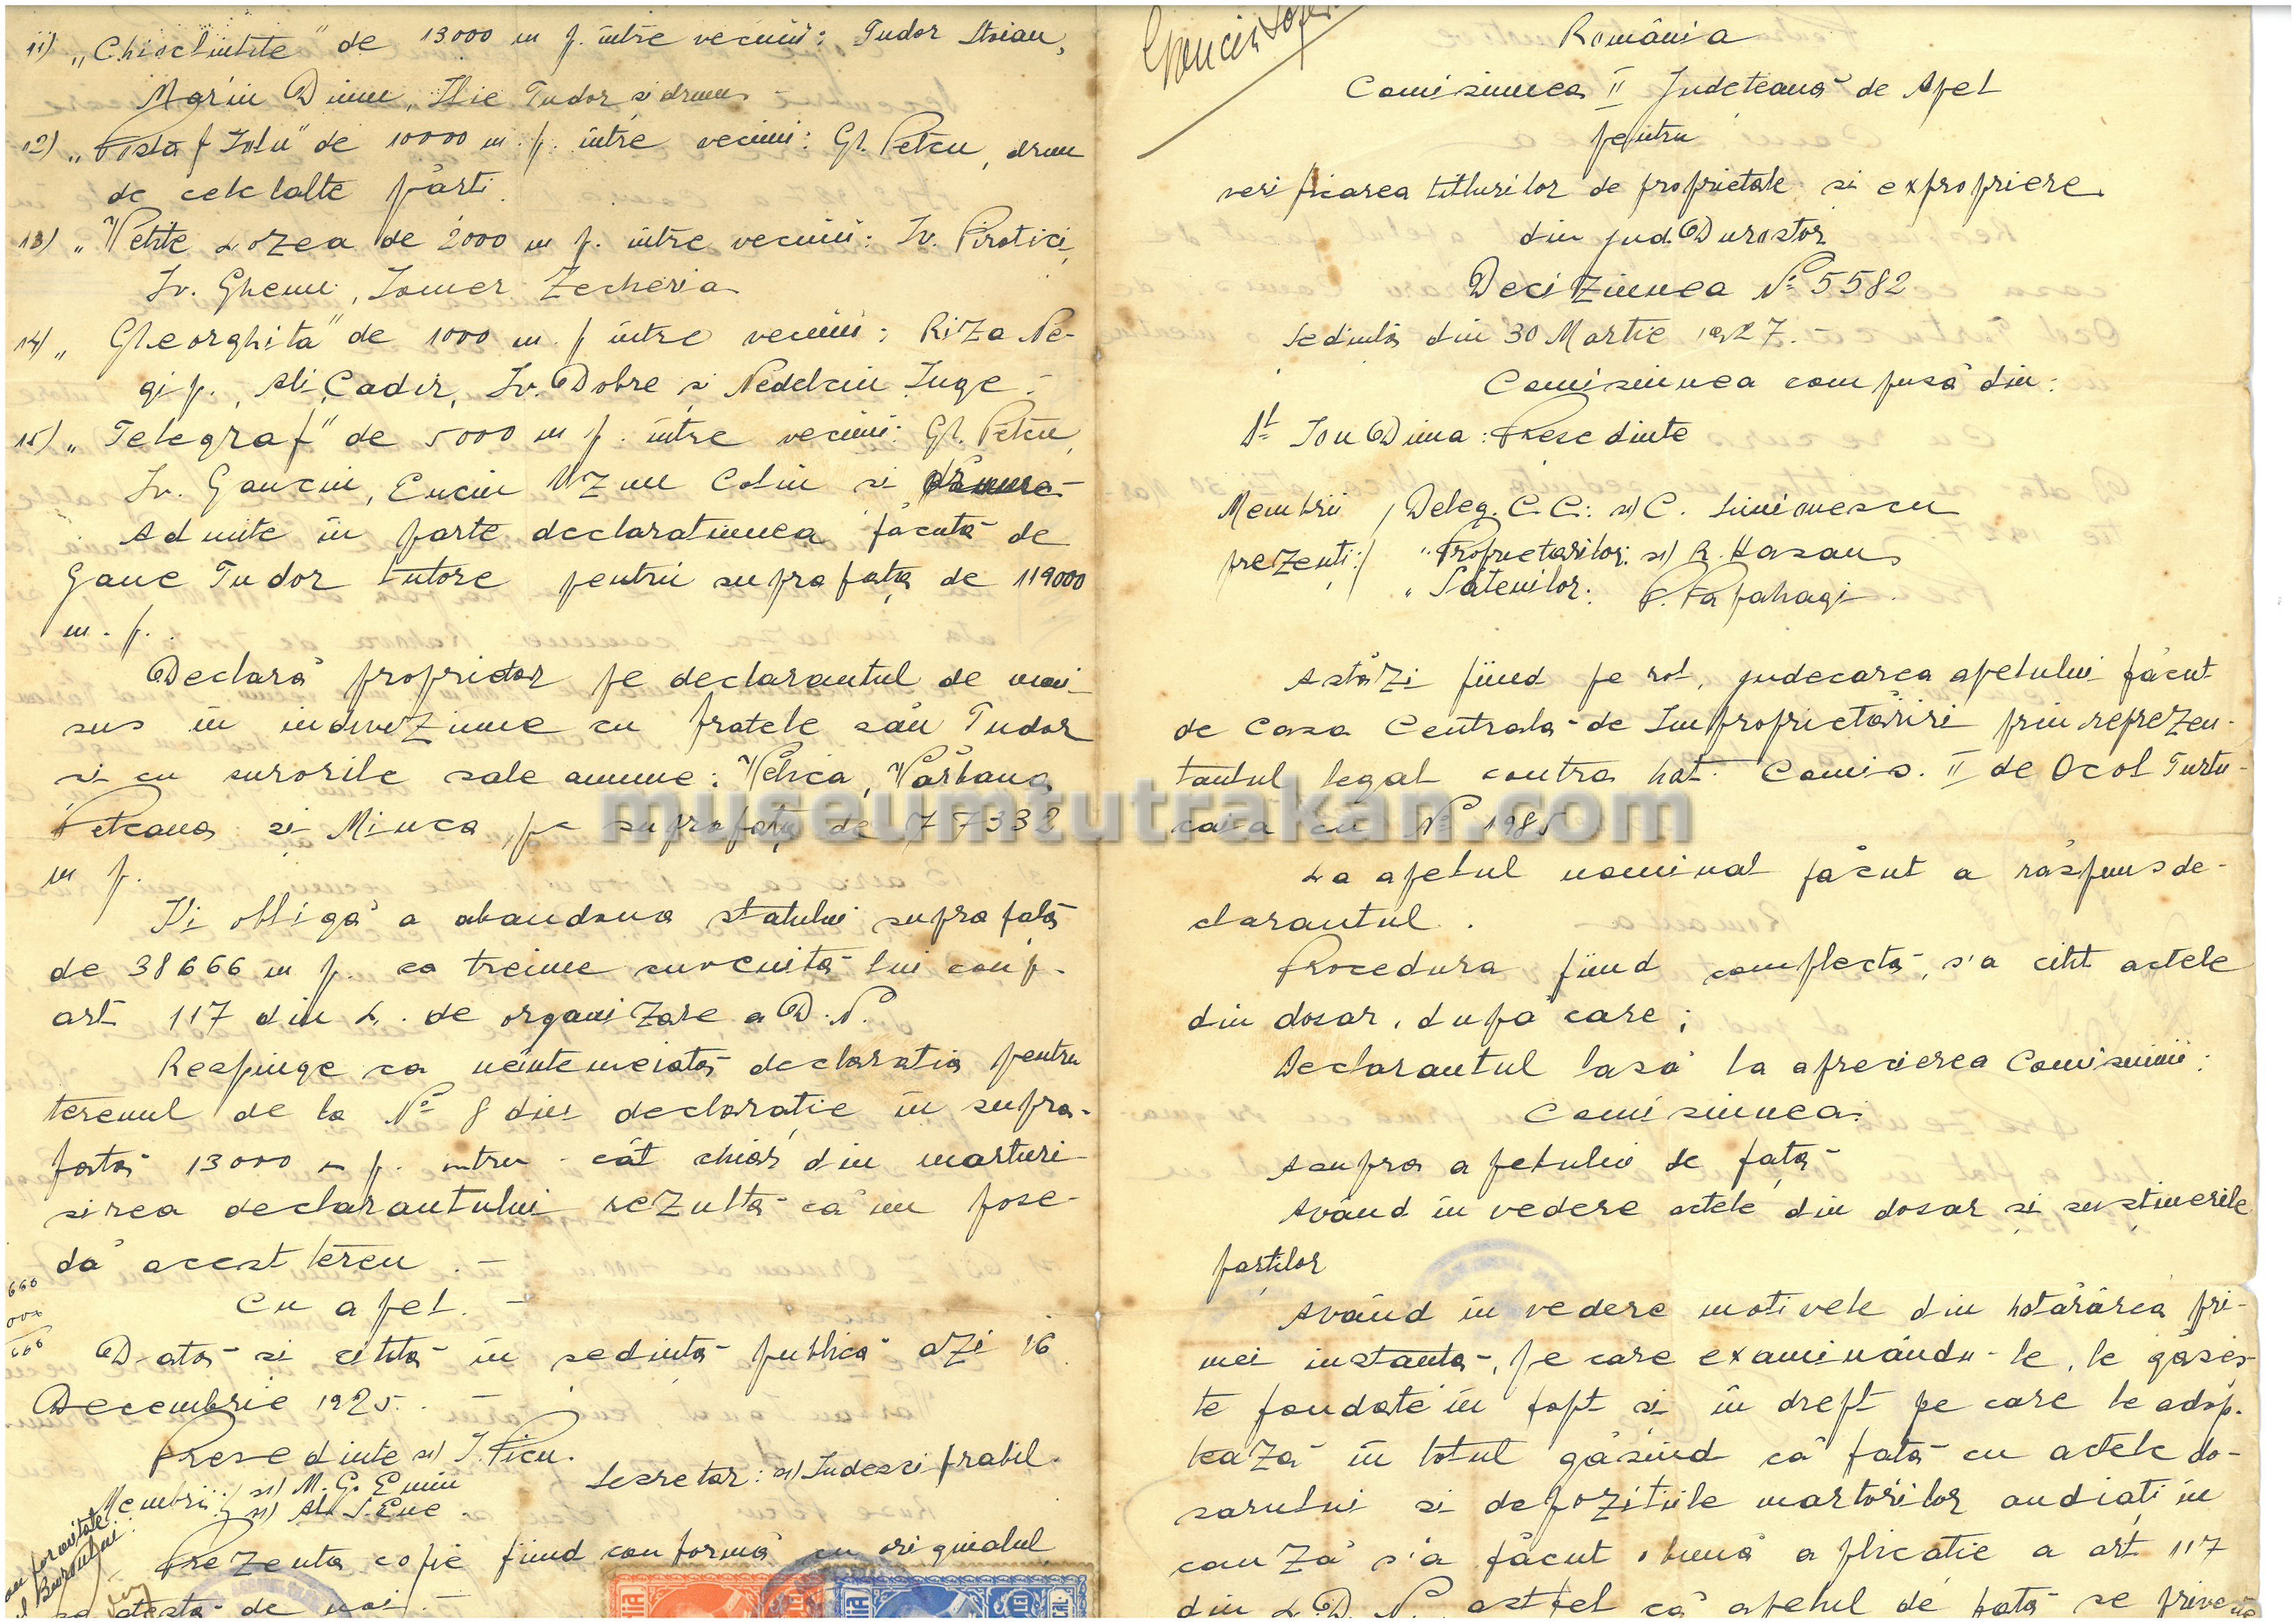 11) „Chioclintite" de 13000 m p. între vecinii: Tudor Stoian,
Marin Dimu, Ilie Tudor si drum
12) de 10000 m. p. între vecinii: Gh. Petcu, drum
de celelalte părti.
13) „Petite Lozea de 2000 m p. între vecinii: Iv. Pirotici,
Iv. Ghemu, Tomer Zecheria
14) „Gheorghita" de 1000 m. p între vecinii: Riza Ne-
gip., Ali Cadir, Iv. Dobre si Nedelciu Juge.
15) „Telegraf" de 5000 m p. între vecinii: Gh. Petcu,
Iv. Ganciu, Enciu Uzun Coliu si
Admite în parte declaratiunea făcută de
Gane Tudor tutore pentru suprafata de 119000
m. p.
Declară proprietar pe declarantul de mai
sus în indiviziune cu fratele său Tudor
si cu surorile sale anume: Velica, Vărbana
Petcana si Minca, pe suprafata de 77332
m p.
Ii obligă a abandona statului suprafată
de 38666 m p. ca treime cuvenită lui conf.
art 117 din L. de organizare a D. N.
Respinge ca neîntemeiată declaratia pentru
terenul de la No 8 din declaratie în supra-
fată 13000 m p. intru cât chiar din marturi-
sirea declarantului rezultă că nu pose-
dă acest teren. –
Cu apel. –
Dată si citită în sedintă publică azi 16
Decembrie 1925. –
Presedinte ss) I. Picu.
Membrii: ss) M. G. Emin
ss) Al. S. Ene
Secretar: ss) Indescifrabil.
Prezenta copie fiind conformă cu originalul
se atestă de noi. –
660
000
666
museumtutrakan.com
România
Comisiunea II Judeteană de Apel
pentru
verificarea titlurilor de proprietate si expropriere
din jud. Durostor
Deciziunea No 5582
Sedinta din 30 Martie 1927. –
Comisiunea compusă din:
Dl Ion Dima: Presedinte
Membrii prezenti: Deleg. C.C.: ss) C. Simionescu
" Proprietarilor: ss) R. Hasan
" Sătenilor: P. Papahagi
Astăzi fiind pe rol, judecarea apelului făcut
de Casa Centrală de Improprietăriri prin reprezen-
tantul legal contra hot. Comis. II de Ocol Turtu-
caia cu No 1985
La apelul nominal făcut a răspuns de-
clarantul.
Procedura fiind complectă, s'a citit actele
din dosar, după care;
Declarantul lasă la aprecierea Comisiunii:
Comisiunea:
Asupra apelului de fată
Având în vedere actele din dosar si sustinerile
partilor
Având în vedere motivele din hotărârea pri-
mei instanta, pe care examinându-le, le găseş-
te fondate în fapt si în drept pe care le adop-
tează în totul găsind că fată cu actele do-
sarului si depozitiile martorilor audiați în
cauză s'a făcut o bună aplicatie a art 117
din L. D. N. astfel că apelul de fată se priveste